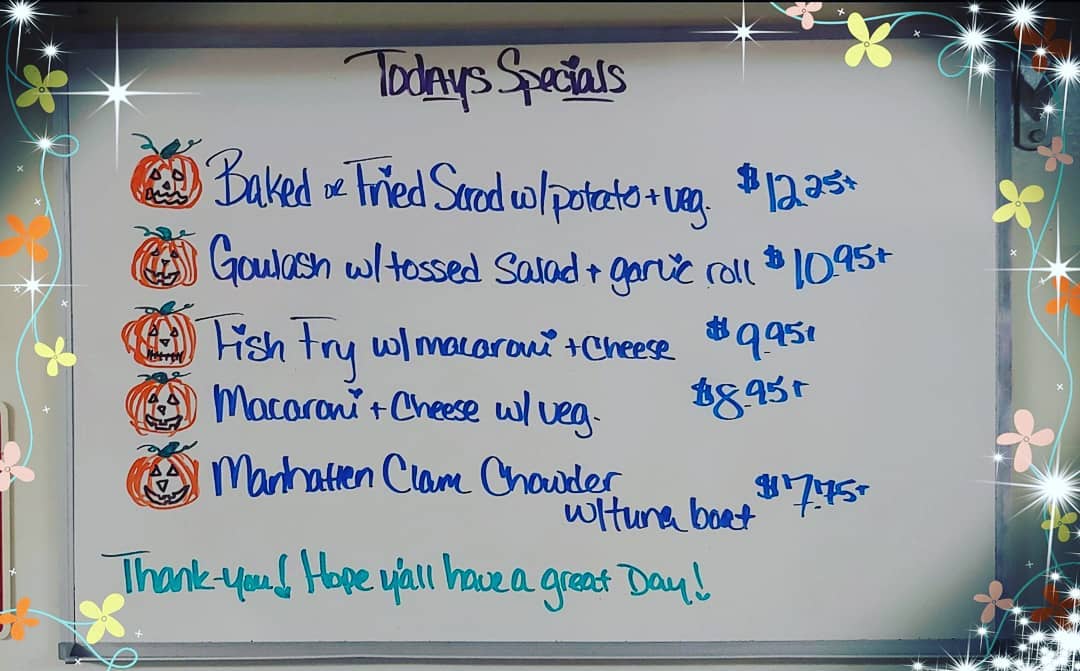 Todays Specials
Baked or Fried Scrod w/potato + veg. $12.25+
Goulash w/tossed Salad + garlic roll $10.95+
Fish Fry w/macaroni + Cheese $9.95+
Macaroni + Cheese w/ veg. $8.95+
Manhatten Clam Chowder
w/tuna boat $7.75+
Thank-you! Hope y'all have a great Day!